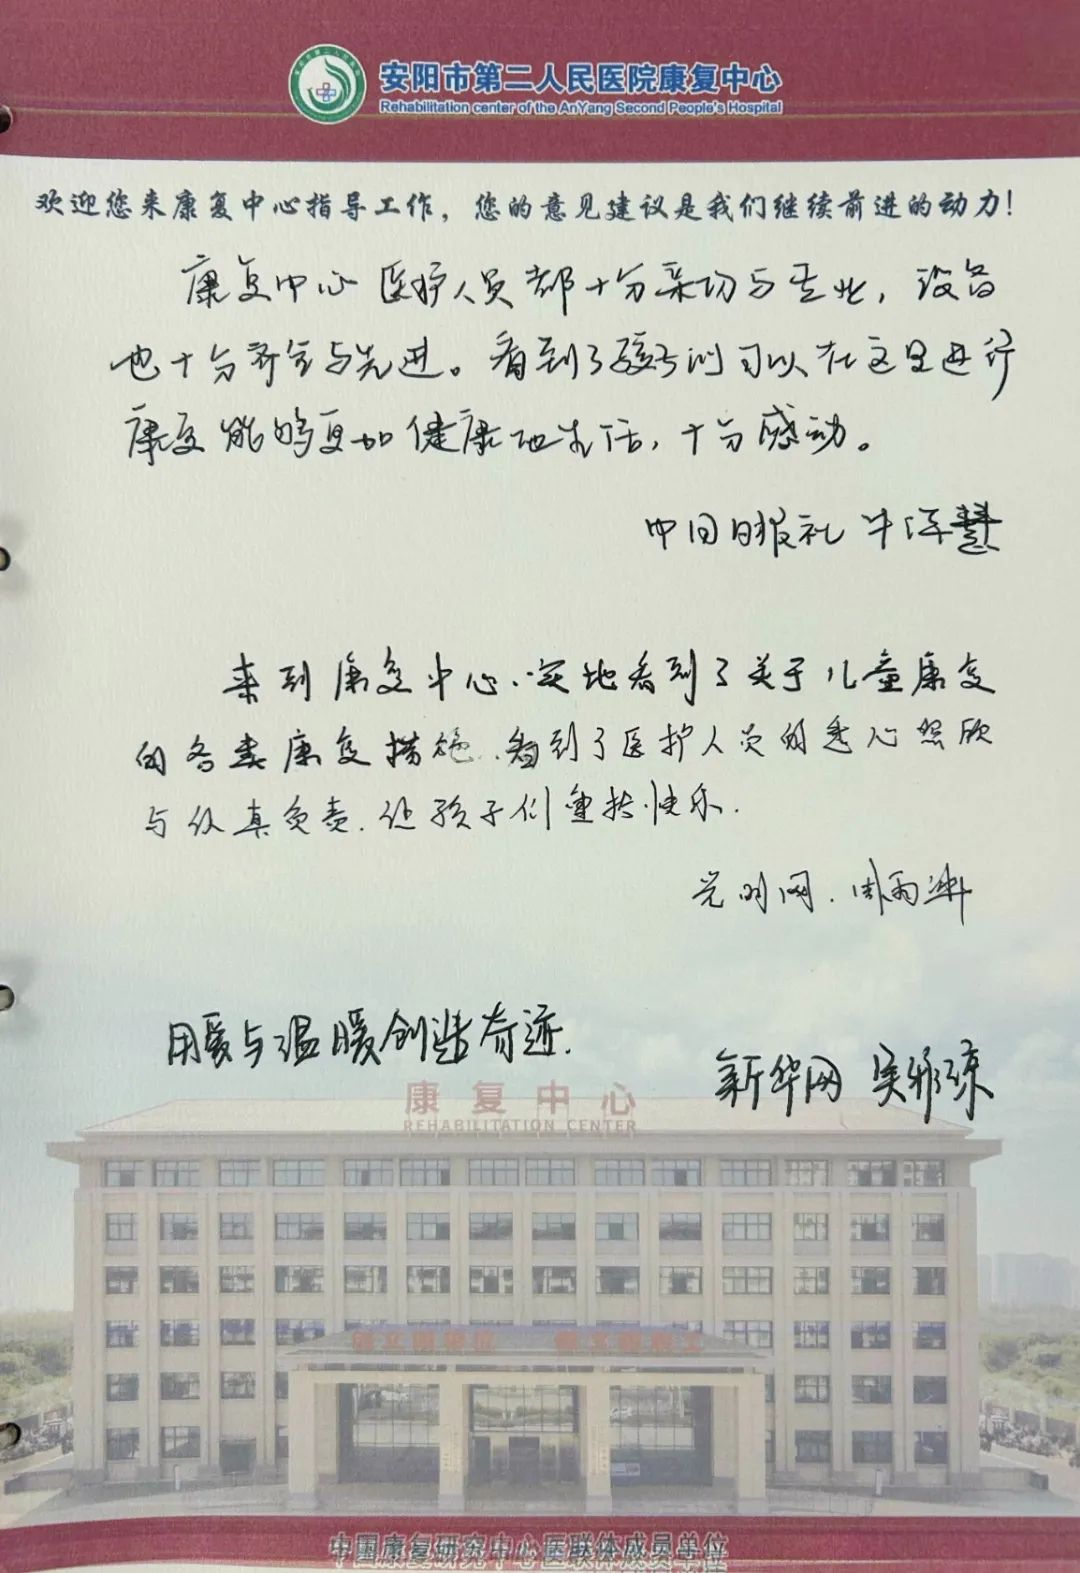 安阳市第二人民医院康复中心
Rehabilitation center of the AnYang Second People's Hospital
欢迎您来康复中心指导工作，您的意见建议是我们继续前进的动力！
康复中心医护人员都十分亲切与专业，设备
也十分齐全与先进。看到了孩子们可以在这里进行
康复能够更加健康地生活，十分感动。
中国日报社 牛泽慧
来到康复中心.实地看到了关于儿童康复
的各类康复措施.看到了医护人员的悉心照顾
与认真负责.让孩子们重获快乐.
光明网.周雨
用爱与温暖创造奇迹.
新华网 吴雅琼
康复中心
REHABILITATION CENTER
中国康复研究中心医联体成员单位